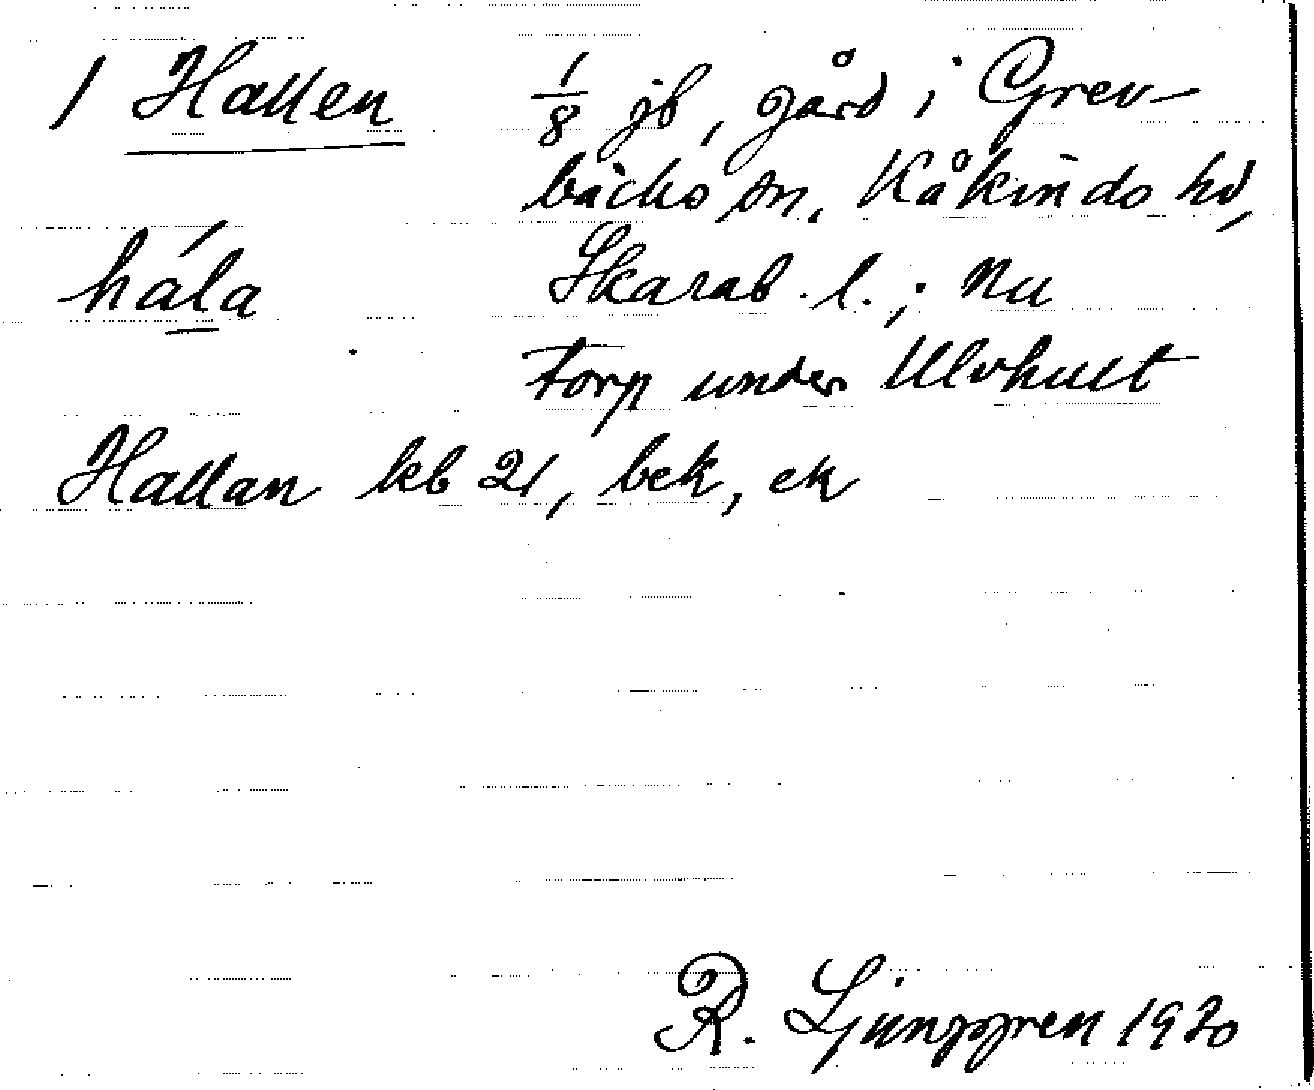 1 Hallen 1/8 jb, gård i Grev-
bäcks sn, Kåkinds hd,
hála Skarab. l.; nu
torp under Ulvhult
Hallan kb 21, bek, ek
R. Ljunggren 1920